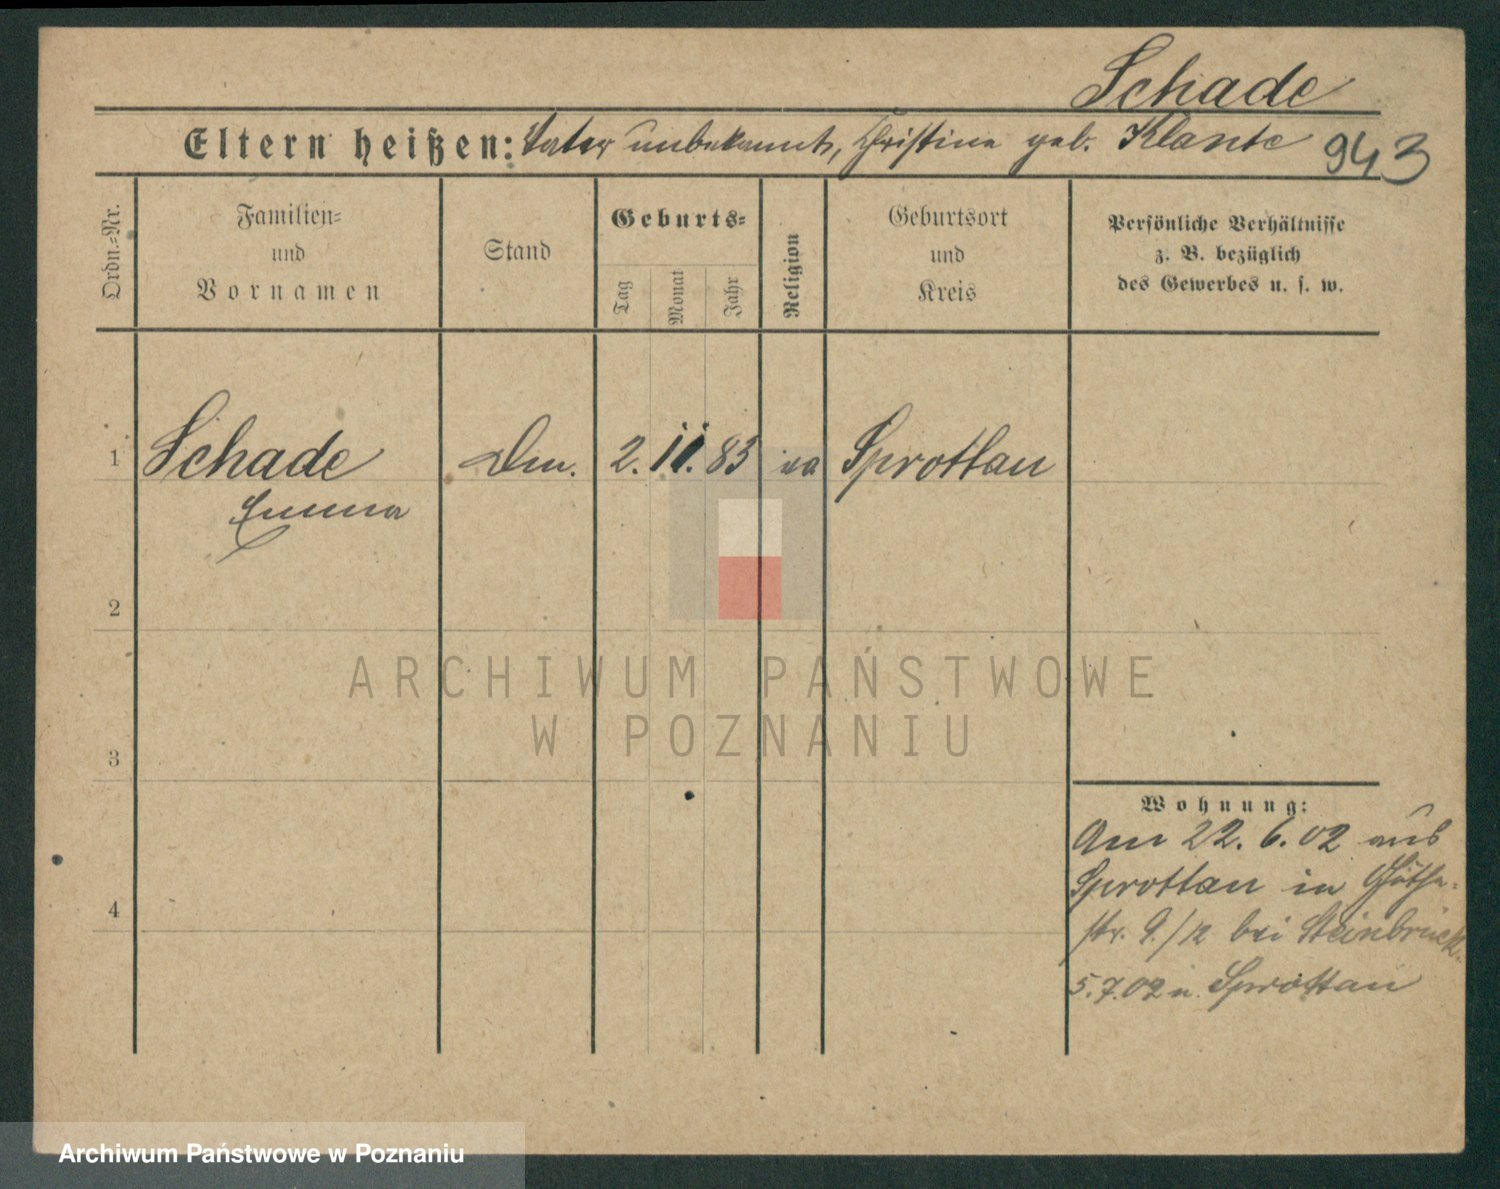 Schade
Eltern heißen: Vater unbekannt, Christine geb. Klante 943
Ordn.=Nr.
Familien=
und
Vornamen
Stand
Geburts=
Tag
Monat
Jahr
Religion
Geburtsort
und
Kreis
Persönliche Verhältnisse
z. B. bezüglich
des Gewerbes u. s. w.
1 Schade 2. 11. 83 Sprottau
Emma
2
3
4
Wohnung:
Am 22. 6. 02 aus
Sprottau in Göthe-
str. 9. bei Steinbrück.
5.7.02 n. Sprottau
ARCHIWUM PAŃSTWOWE
W POZNANIU
Archiwum Państwowe w Poznaniu